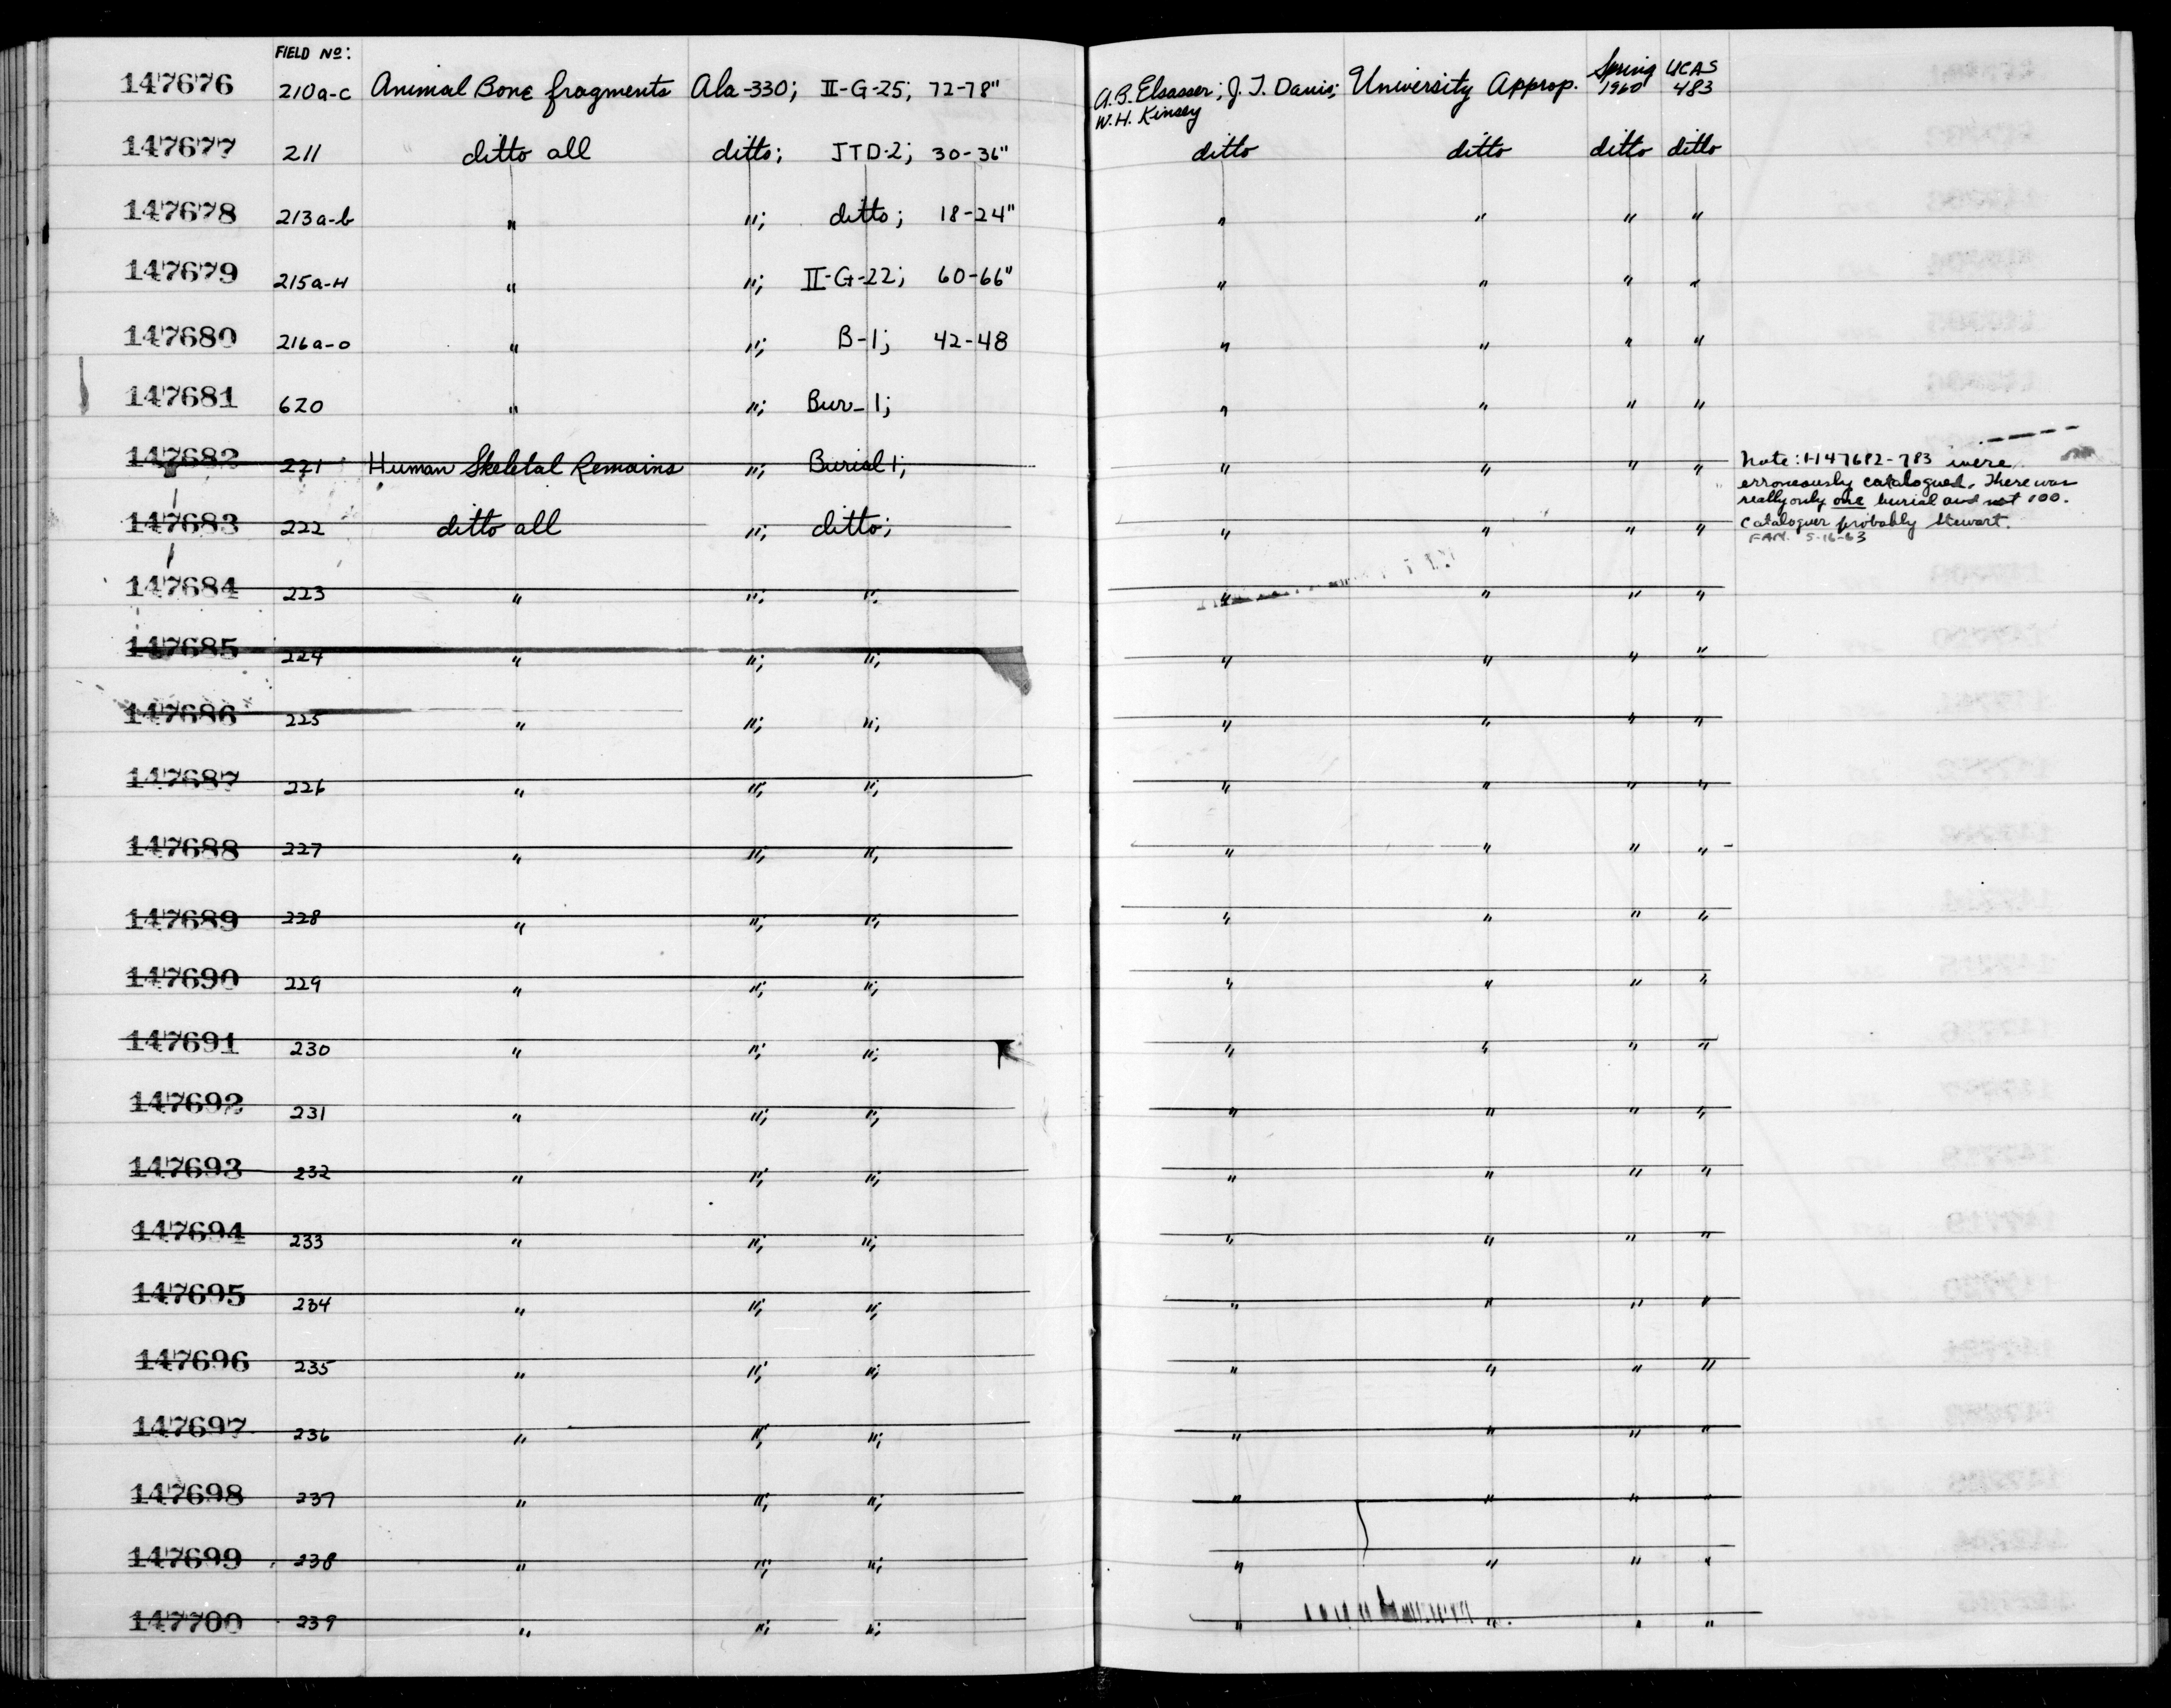 FIELD No:
147676 210a-c Animal Bone fragments Ala-330; II-G-25; 72-78" A.B. Elsasser; J.T. Davis; University Approp. Spring 1960 UCAS 483
W.H. Kinsey
147677 211 ditto all ditto; JTD-2; 30-36" ditto ditto ditto ditto
147678 213a-b " "; ditto; 18-24" " " " "
147679 215a-H " "; II-G-22; 60-66" " " " "
147680 216a-o " "; B-1; 42-48 " " " "
147681 620 " "; Bur-1; " " " "
147682 221 Human Skeletal Remains "; Burial 1; " " " " Note: 1-147682-783 were
erroneously catalogued. There was
really only one burial and not 100.
147683 222 ditto all "; ditto; " " " " Cataloguer probably Stewart.
5-16-63
147684 223 " "; "; " " " "
147685 224 " "; "; " " " "
147686 225 " "; "; " " " "
147687 226 " "; "; " " " "
147688 227 " "; "; " " " "
147689 228 " "; "; " " " "
147690 229 " "; "; " " " "
147691 230 " "; "; " " " "
147692 231 " "; "; " " " "
147693 232 " "; "; " " " "
147694 233 " "; "; " " " "
147695 234 " "; "; " " " "
147696 235 " "; "; " " " "
147697 236 " "; "; " " " "
147698 237 " "; "; " " " "
147699 238 " "; "; " " " "
147700 239 " "; "; " " " "